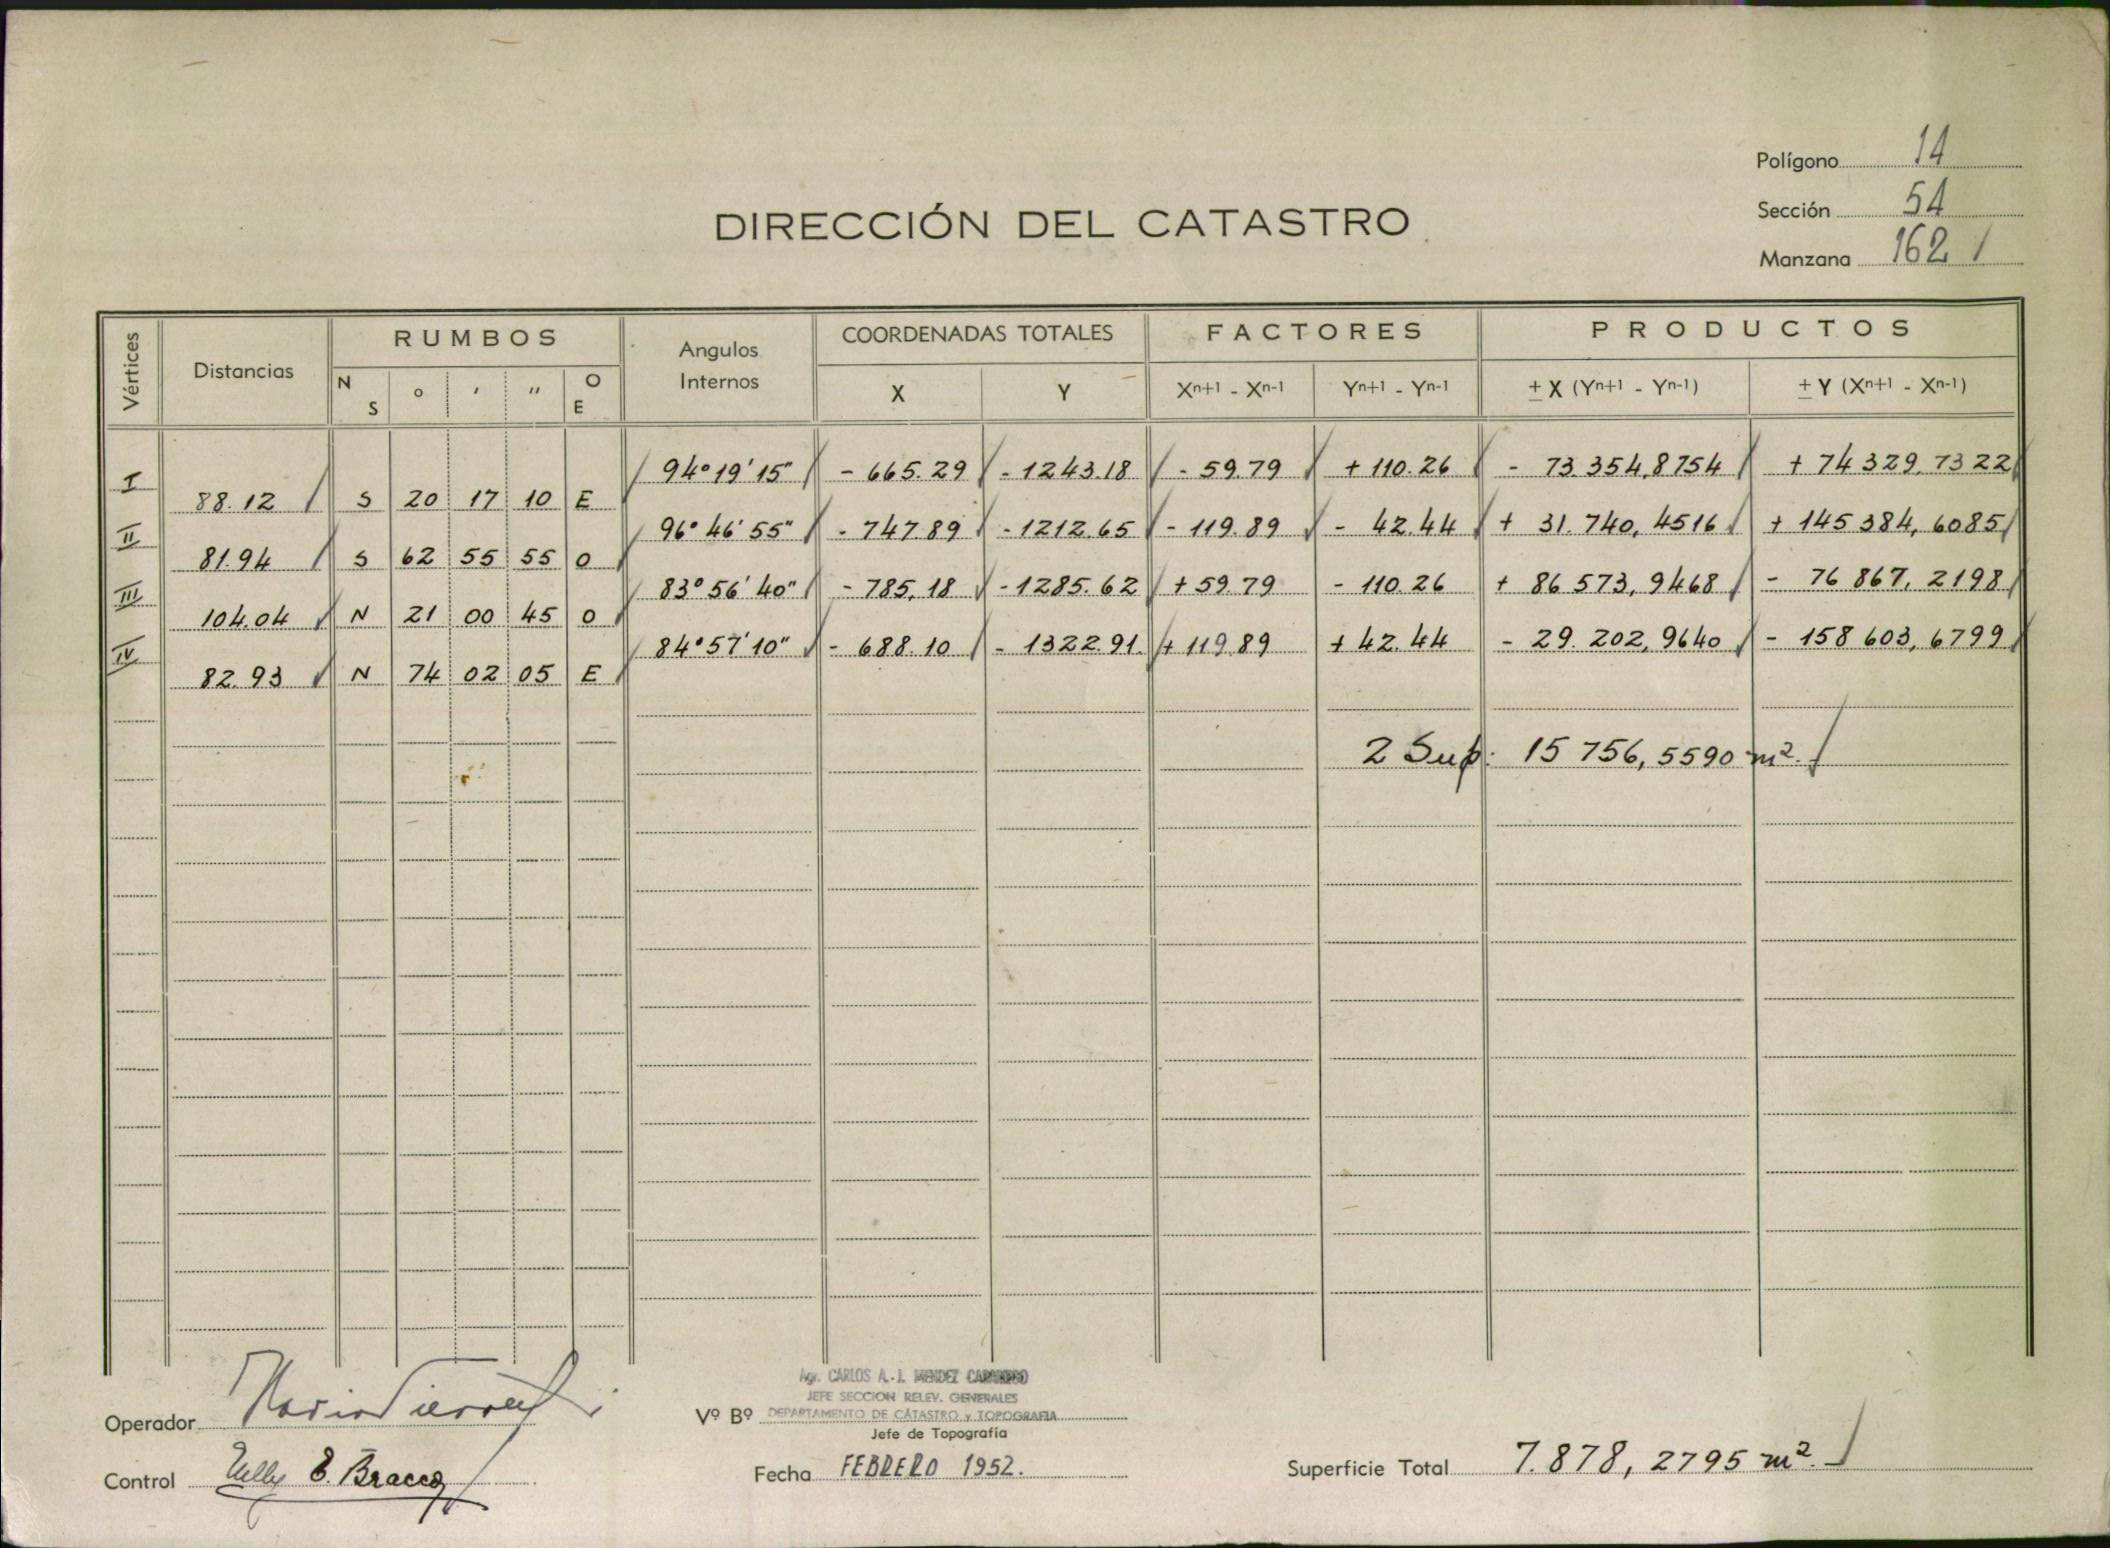 Polígono 14
Sección 54
DIRECCIÓN DEL CATASTRO
Manzana 162 /
Vértices Distancias RUMBOS Angulos Internos COORDENADAS TOTALES FACTORES PRODUCTOS
N S ° ' " O E X Y Xn+1 - Xn-1 Yn+1 - Yn-1 ± X (Yn+1 - Yn-1) ± Y (Xn+1 - Xn-1)
I 94°19'15" - 665.29 - 1243.18 - 59.79 + 110.26 - 73.354,8754 + 74329,7322
88.12 S 20 17 10 E
II 96°46'55" - 747.89 - 1212.65 - 119.89 - 42.44 + 31.740,4516 + 145384,6085
81.94 S 62 55 55 O
III 83°56'40" - 785,18 - 1285.62 + 59.79 - 110.26 + 86573,9468 - 76867,2198
104.04 N 21 00 45 O
IV 84°57'10" - 688.10 - 1322.91 + 119.89 + 42.44 - 29.202,9640 - 158603,6799
82.93 N 74 02 05 E
2 Sup: 15756,5590 m².
Agr. CARLOS A. J. MENDEZ
JEFE SECCION RELEV. GENERALES
Operador Vº Bº DEPARTAMENTO DE CATASTRO y TOPOGRAFIA
Jefe de Topografía
Control Nelly E. Bracco Fecha FEBRERO 1952. Superficie Total 7.878,2795 m².